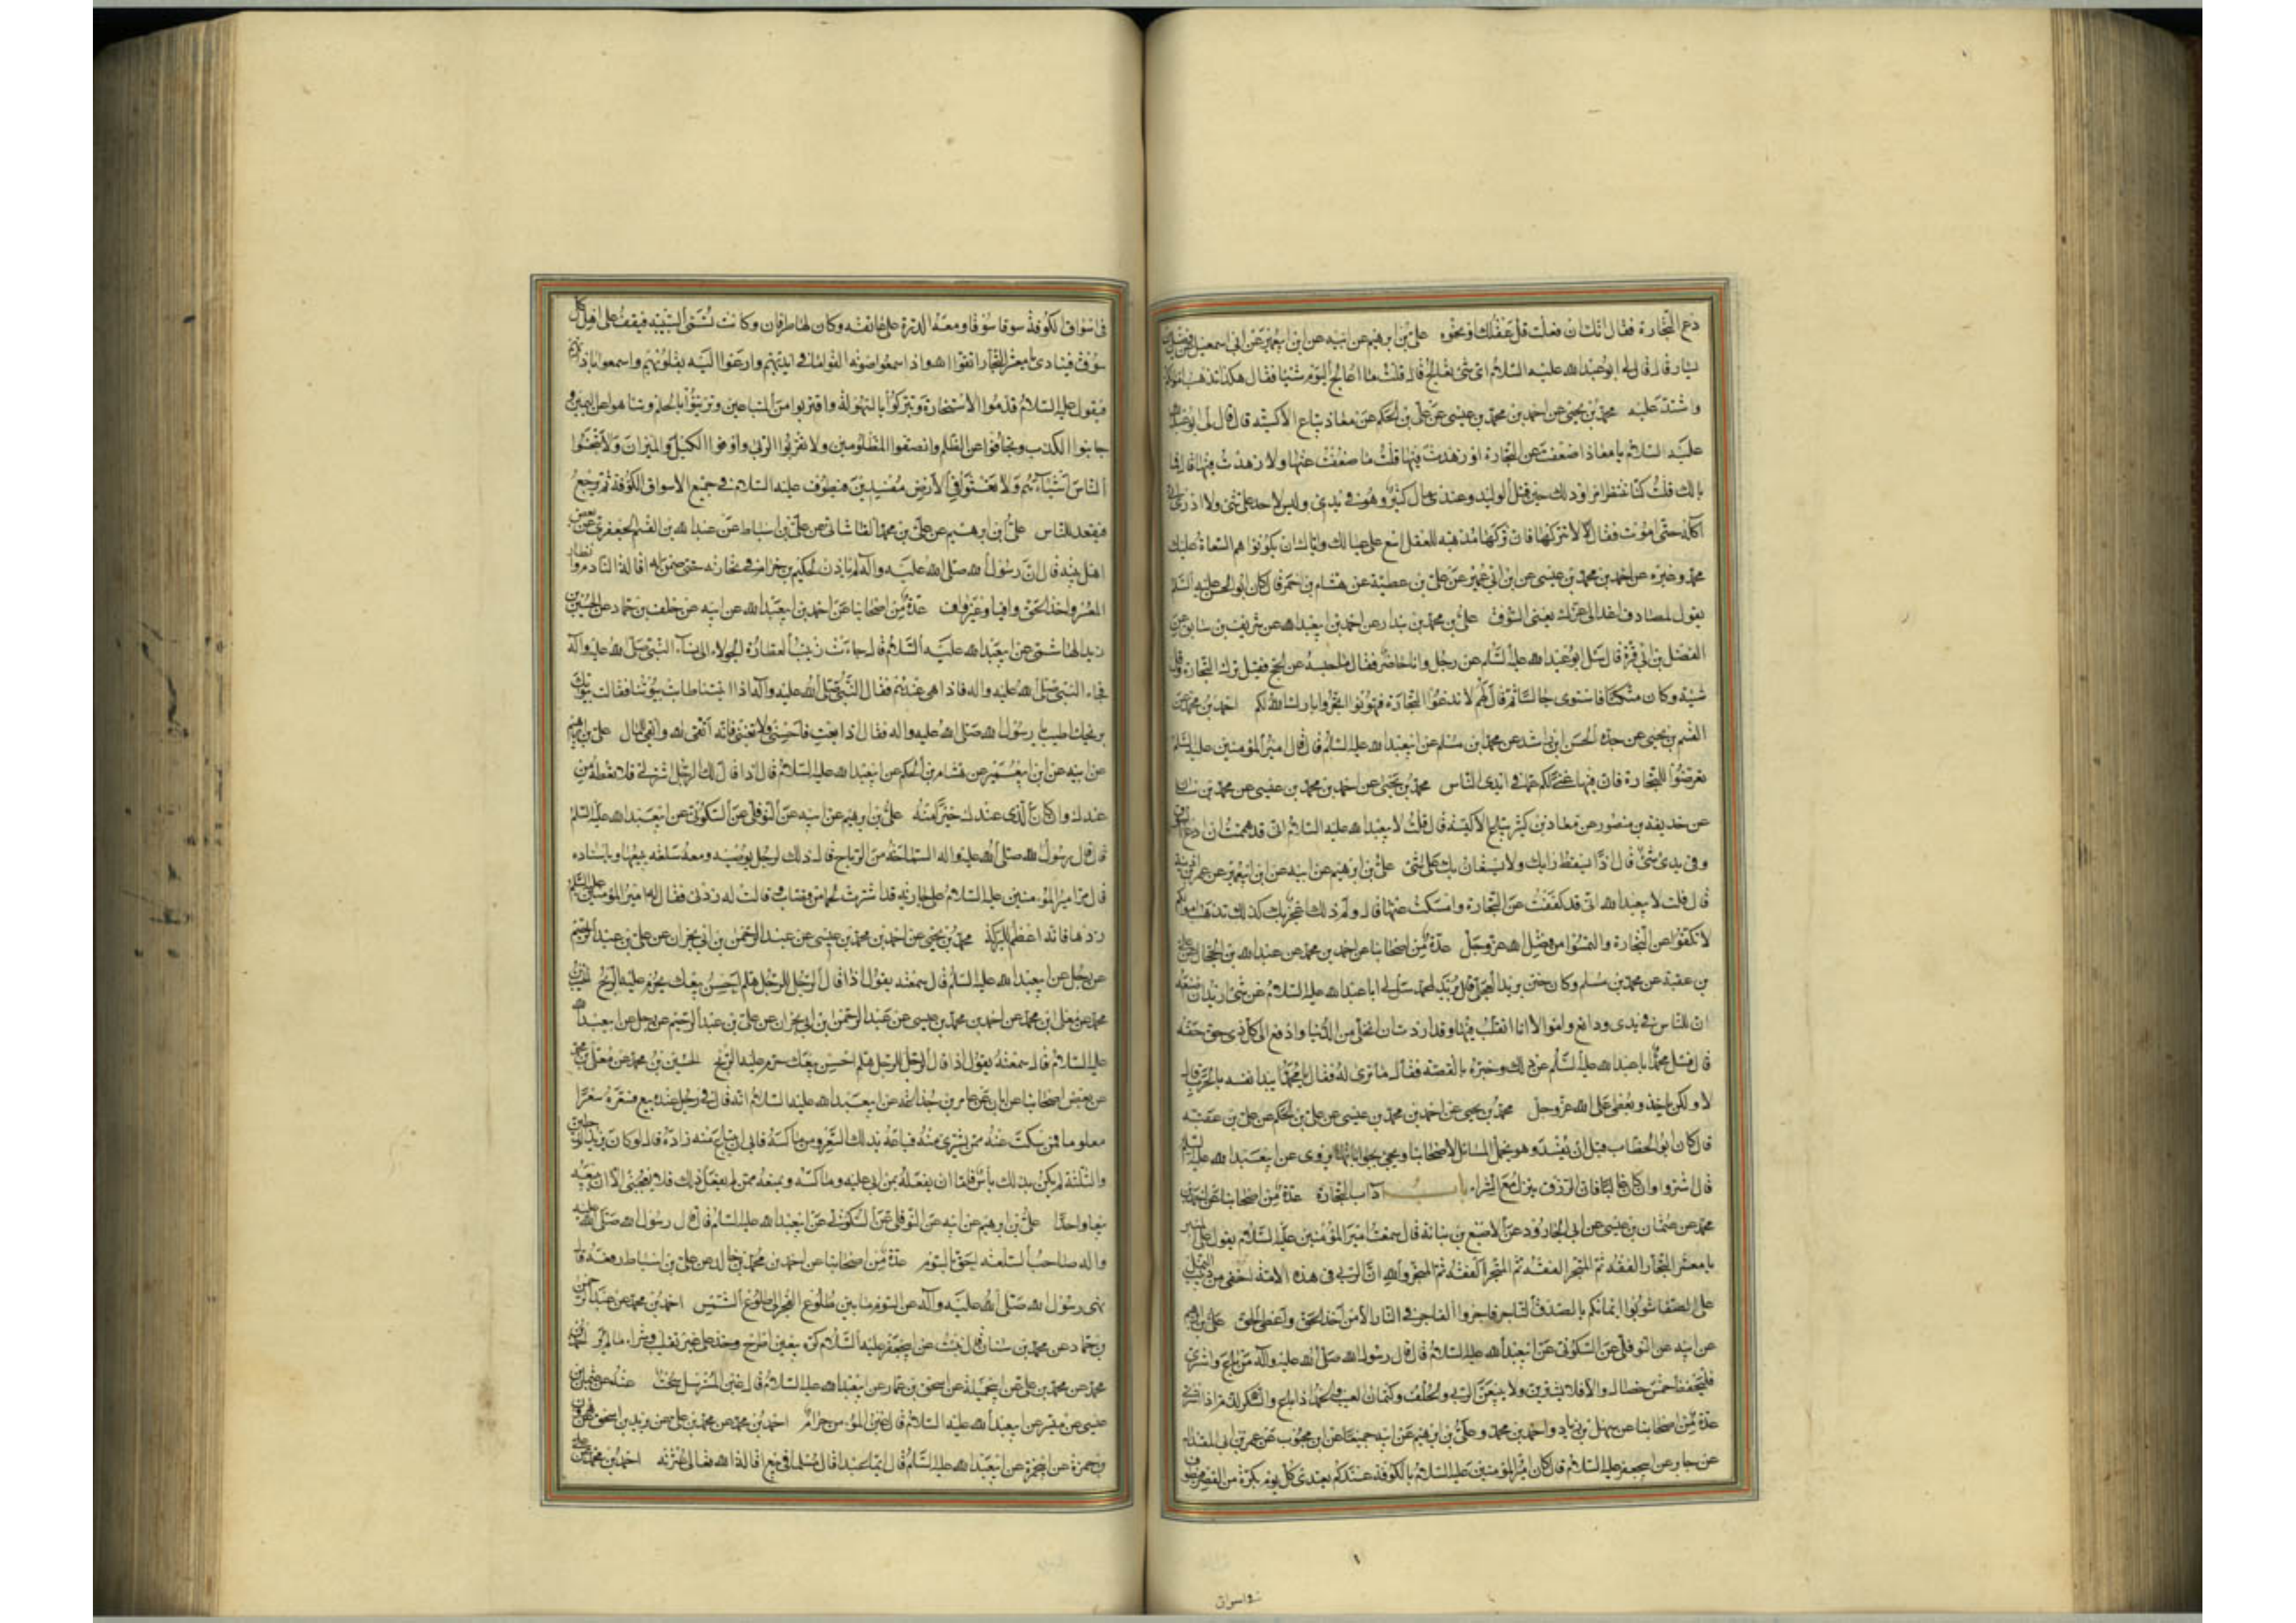 دع التجارة فقال انك ان فعلت قل عقلك او نحوه علي بن ابرهيم عن ابيه عن ابن ابيعمير عن ابي اسمعيل عن فضيل بن
يسار قال قال لي ابو عبدالله عليه السلام اي شي تعالج قال قلت ما اعالج اليوم شيئا فقال هكذا تذهب اموالكم
واشتد عليه محمد بن يحيى عن احمد بن محمد بن عيسى عن علي بن الحكم عن معاذ بياع الاكسية قال قال لي ابو عبدالله
عليه السلام يا معاذ اضعفت عن التجارة او زهدت فيها قلت ما ضعفت عنها ولا زهدت فيها قال فما
بالك قلت كنا ننتظر امرا وذلك حين قتل الوليد وعندي مال كثير وهو في يدي وليس لاحد علي شي ولا اراني
آكله حتى اموت فقال لا تتركها فان تركها مذهبة للعقل اسع على عيالك واياك ان يكونوا هم السعاة عليك
محمد وغيره عن احمد بن محمد بن عيسى عن ابن ابي عمير عن علي بن عطية عن هشام بن احمر قال كان ابو الحسن عليه السلم
يقول لمصادف اغد الى عزك يعني السوق علي بن محمد بن بندار عن احمد بن ابيعبدالله عن شريف بن سابق عن
الفضل بن ابي قرة قال سئل ابو عبدالله عليه السلم عن رجل وانا حاضر فقال ما حبسه عن الحج فقيل ترك التجارة وقل
شيئه وكان متكئا فاستوى جالسا ثم قال لهم لا تدعوا التجارة فتهونوا اتجروا بارك الله لكم احمد بن محمد عن
القسم بن يحيى عن جده الحسن بن راشد عن محمد بن مسلم عن ابيعبدالله عليه السلم قال قال امير المؤمنين عليه السلم
تعرضوا للتجارة فان فيها غنى لكم عما في ايدي الناس محمد بن يحيى عن احمد بن محمد بن عيسى عن محمد بن سنان
عن حذيفة بن منصور عن معاذ بن كثير بياع الاكيسة قال قلت لابيعبدالله عليه السلام اني قد هممت ان ادع السوق
وفي يدي شي قال اذا يسقط رايك ولا يستعان بك على شي علي بن ابرهيم عن ابيه عن ابن ابيعمير عن عمر بن اذينة
قال قلت لابيعبدالله اني قد كففت عن التجارة وامسكت عنها قال ولم ذلك اعجز بك كذلك تذهب اموالكم
لا تكفوا عن التجارة والتمسوا من فضل الله عز وجل عدة من اصحابنا عن احمد بن محمد عن عبدالله بن الحجال عن علي
بن عقبة عن محمد بن مسلم وكان ختن بريد العجلي قال بريد لمحمد سل لي ابا عبدالله عليه السلام عن شي اريد ان اصنعه
ان للناس في يدي ودائع واموالا انا اتقلب فيها وقد اردت ان اتخلى من الدنيا وادفع الى كل ذي حق حقه
قال فسئل محمد ابا عبدالله عليه السلم عن ذلك وخبره بالقصة فقال ما ترى له فقال يا محمد ايبدا نفسه بالحرب قال
لا ولكن ياخذ ويعطي على الله عز وجل محمد بن يحيى عن احمد بن محمد بن عيسى عن علي بن الحكم عن علي بن عقبة
قال كان ابو الخطاب قبل ان يفسد وهو يحمل المسائل لاصحابنا ويجي بجواباتها روى عن ابيعبدالله عليه السلم
قال اشتروا وان كان غاليا فان الرزق ينزل مع الشراء باب آداب التجارة عدة من اصحابنا عن احمد بن
محمد عن عثمان بن عيسى عن ابي الجارود عن الاصبغ بن نباتة قال سمعت امير المؤمنين عليه السلام يقول على المنبر
يا معشر التجار الفقه ثم المتجر الفقه ثم المتجر الفقه ثم المتجر والله ان للربى في هذه الامة اخفى من دبيب النمل
على الصفا شوبوا ايمانكم بالصدق التاجر فاجر والفاجر في النار الا من اخذ الحق واعطى الحق علي بن ابرهيم
عن ابيه عن النوفلي عن السكوني عن ابيعبدالله عليه السلام قال قال رسول الله صلى الله عليه وآله من باع واشترى
فليحفظ خمس خصال والا فلا يشترين ولا يبيعن الربى والحلف وكتمان العيب والحمد اذا باع والذم اذا اشترى
عدة من اصحابنا عن سهل بن زياد واحمد بن محمد وعلي بن ابرهيم عن ابيه جميعا عن ابن محبوب عن عمرو بن ابي المقدام
عن جابر عن ابيجعفر عليه السلام قال كان امير المؤمنين عليه السلام بالكوفة عندكم يغتدي كل يوم بكرة من القصر فيطوف
في اسواق
في اسواق الكوفة سوقا سوقا ومعه الدرة على عاتقه وكان لها طرفان وكانت تسمى السبيبة فيقف على اهل كل
سوق فينادي يا معشر التجار اتقوا الله واذا سمعوا صوته القوا ما في ايديهم وارعوا اليه بقلوبهم واسمعوا باذانهم
فيقول عليه السلام قدموا الاستخارة وتبركوا بالسهولة واقتربوا من المتباعين وتزينوا بالحلم وتناهوا عن اليمين و
جانبوا الكذب وتجافوا عن الظلم وانصفوا المظلومين ولا تقربوا الربى واوفوا الكيل والميزان ولا تبخسوا
الناس اشياءهم ولا تعثوا في الارض مفسدين فيطوف عليه السلام في جميع الاسواق الكوفة ثم يرجع
فيقعد للناس علي بن ابرهيم عن علي بن محمد القاشاني عن علي بن اسباط عن عبدالله بن القسم الجعفري عن بعض
اهل بيته قال ان رسول الله صلى الله عليه وآله لم ياذن لحكيم بن حزام في تجارته حتى ضمن له اقالة النادم وانظار
المعسر واخذ الحق وافيا وغير واف عدة من اصحابنا عن احمد بن ابيعبدالله عن ابيه عن خلف بن حماد عن الحسين بن
زيد الهاشمي عن ابيعبدالله عليه السلام قال جاءت زينب العطارة الحولاء الى نساء النبي صلى الله عليه وآله
فجاء النبي صلى الله عليه واله فاذا هي عندهم فقال النبي صلى الله عليه وآله اذا اتيتنا طابت بيوتنا فقالت بيوتك
بريحك اطيب يا رسول الله صلى الله عليه واله فقال اذا بعت فاحسني ولا تغشي فانه اتقى لله وابقى للمال علي بن ابرهيم
عن ابيه عن ابن ابيعمير عن هشام بن الحكم عن ابيعبدالله عليه السلام قال اذا قال لك الرجل اشتر لي فلا تعطه من
عندك وان كان الذي عندك خيرا منه علي بن ابرهيم عن ابيه عن النوفلي عن السكوني عن ابيعبدالله عليه السلم
قال قال رسول الله صلى الله عليه واله السماحة من الرباح قال ذلك لرجل يوصيه ومعه سلعة يبيعها وباسناده
قال مر امير المؤمنين عليه السلام على جارية قد اشترت لحما من قصاب وقالت له زدني فقال له امير المؤمنين عليه السلم
زدها فانه اعظم للبركة محمد بن يحيى عن احمد بن محمد بن عيسى عن عبد الرحمن بن ابي نجران عن علي بن عبد الرحيم
عن رجل عن ابيعبدالله عليه السلم قال سمعته يقول اذا قال الرجل للرجل هلم احسن بيعك يحرم عليه الربح الحسين بن
محمد عن معلى بن محمد عن احمد بن محمد بن عيسى عن عبد الرحمن بن ابي نجران عن علي بن عبد الرحيم عن رجل عن ابيعبدالله
عليه السلام قال سمعته يقول اذا قال الرجل للرجل هلم احسن بيعك حرم عليه الربح الحسين بن محمد عن معلى بن محمد
عن بعض اصحابنا عن ابان عن عامر بن جذاعة عن ابيعبدالله عليه السلام انه قال في رجل عنده بيع فسعره سعرا
معلوما فمن سكت عنه ممن يشتري منه فباعه بذلك السعر ومن ماكسه فابى ان يبتاع منه زاده قال لو كان يزيد الرجلين
والثلثة لم يكن بذلك باس فاما ان يفعله بمن ابى عليه وماكسه ويمنعه ممن لم يفعل ذلك فلا يعجبني الا ان يبيعه
بيعا واحدا علي بن ابرهيم عن ابيه عن النوفلي عن السكوني عن ابيعبدالله عليه السلم قال قال رسول الله صلى الله عليه
واله صاحب السلعة احق بالسوم عدة من اصحابنا عن احمد بن محمد بن خالد عن علي بن اسباط رفعه قال
نهى رسول الله صلى الله عليه وآله عن السوم ما بين طلوع الفجر الى طلوع الشمس احمد بن محمد عن عبد الرحمن
بن حماد عن محمد بن سنان قال نبئت عن ابيجعفر عليه السلام كره بيعين اطرح وخذ على غير تقليب وشراء ما لم ير احمد بن
محمد عن محمد بن علي عن ابيجميلة عن اسحق بن عمار عن ابيعبدالله عليه السلام قال غبن المسترسل سحت عنه عن عثمان بن
عيسى عن ميسر عن ابيعبدالله عليه السلام قال غبن المؤمن حرام احمد بن محمد عن محمد بن علي عن يزيد بن اسحق عن هرون
بن حمزة عن ابيحمزة عن ابيعبدالله عليه السلم قال ايما عبد اقال مسلما في بيع اقاله الله تعالى عثرته احمد بن محمد عن علي